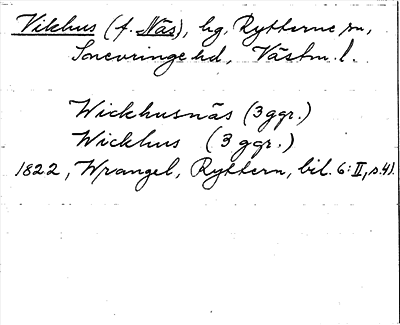 Vikhus (f. Näs), hg, Rytterne sn,
Snevringe hd, Västm. l.
Wickhusnäs (3 ggr.)
Wickhus (3 ggr.)
1822, Wrangel, Ryttern, bil. 6:II, s.41.